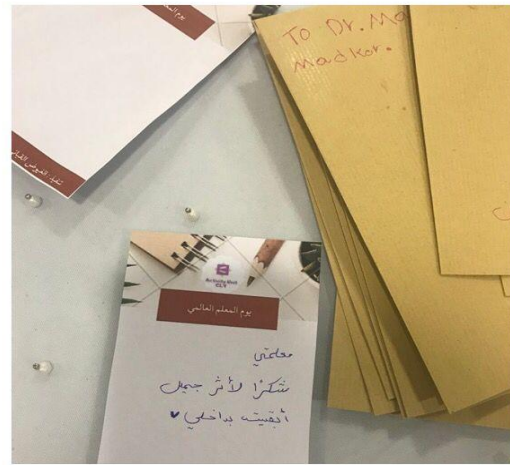 يوم المعلم
To Dr. Ma
Madkor.
يوم المعلم العالمي
معلمتي
شكرًا لأثر جميل
أبقيته بداخلي ♥